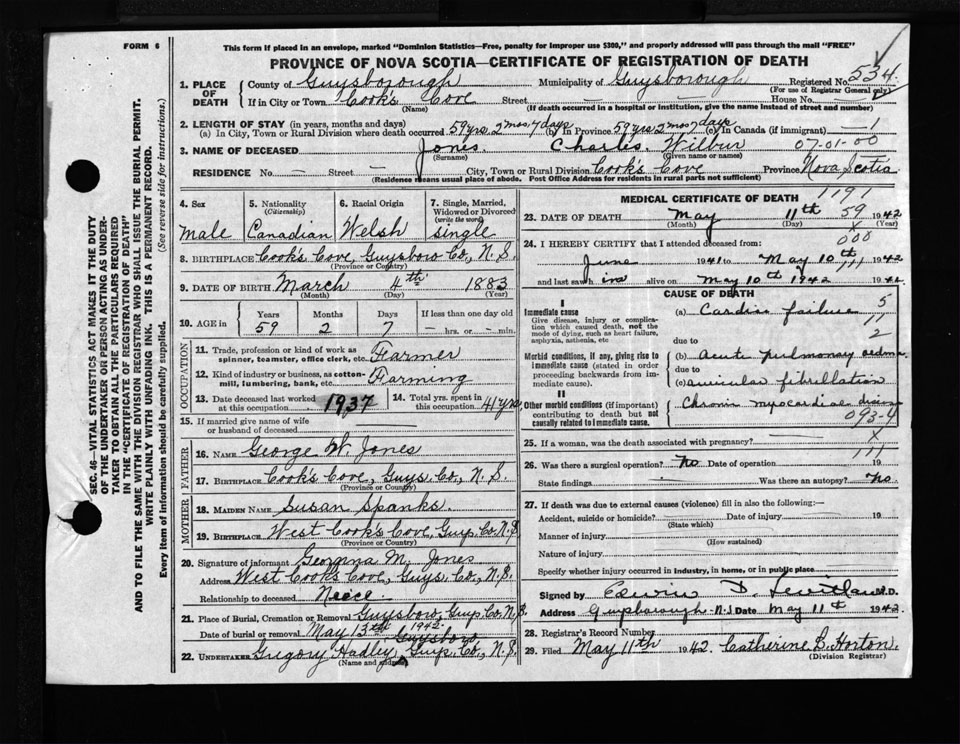 FORM 6
This form if placed in an envelope, marked "Dominion Statistics—Free, penalty for improper use $300," and properly addressed will pass through the mail "FREE"
PROVINCE OF NOVA SCOTIA—CERTIFICATE OF REGISTRATION OF DEATH
1. PLACE OF DEATH County of Guysborough Municipality of Guysborough Registered No. 534
(For use of Registrar General only)
If in City or Town Cook's Cove Street House No.
(Name) (If death occurred in a hospital or institution, give the name instead of street and number)
2. LENGTH OF STAY (in years, months and days)
(a) In City, Town or Rural Division where death occurred 59 yrs 2 mos 7 days (b) In Province 59 yrs 2 mos 7 days (c) In Canada (if immigrant) — 1
3. NAME OF DECEASED Jones Charles Wilbur 07-01-00
(Surname) (Given name or names)
RESIDENCE No. — Street — City, Town or Rural Division Cook's Cove Province Nova Scotia
(Residence means usual place of abode. Post Office Address for residents in rural parts not sufficient)
4. Sex Male
5. Nationality (Citizenship) Canadian
6. Racial Origin Welsh
7. Single, Married, Widowed or Divorced (write the word) single
8. BIRTHPLACE Cook's Cove, Guysboro Co., N. S.
(Province or Country)
9. DATE OF BIRTH March 4th 1883
(Month) (Day) (Year)
10. AGE in Years 59 Months 2 Days 7 If less than one day old — hrs. or — min.
OCCUPATION
11. Trade, profession or kind of work as spinner, teamster, office clerk, etc. Farmer
12. Kind of industry or business, as cotton-mill, lumbering, bank, etc. Farming
13. Date deceased last worked at this occupation 1937
14. Total yrs. spent in this occupation 41 yrs
15. If married give name of wife or husband of deceased
FATHER
16. NAME George W. Jones
17. BIRTHPLACE Cook's Cove, Guys. Co., N. S.
(Province or Country)
MOTHER
18. MAIDEN NAME Susan Spanks.
19. BIRTHPLACE West Cook's Cove, Guys. Co. N. S
(Province or Country)
20. Signature of informant Georgina M. Jones
Address West Cook's Cove, Guys Co., N. S.
Relationship to deceased Neece
21. Place of Burial, Cremation or Removal Guysboro, Guys. Co. N. S.
Date of burial or removal May 13th 1942. Guysboro
22. UNDERTAKER Gregory Hadley, Guys. Co., N. S.
(Name and address)
MEDICAL CERTIFICATE OF DEATH
1191
23. DATE OF DEATH May 11th 59 1942
(Month) (Day) X (Year)
000
24. I HEREBY CERTIFY that I attended deceased from:
June 1941 to May 10th 1942
111
and last saw him alive on May 10th 1942 1942
CAUSE OF DEATH
I
Immediate cause
Give disease, injury or complication which caused death, not the mode of dying, such as heart failure, asphyxia, asthenia, etc
(a) Cardiac failure 5
11
2
due to
Morbid conditions, if any, giving rise to immediate cause (stated in order proceeding backwards from immediate cause).
(b) Acute pulmonary oedma
due to
(c) auricular fibrellation
II
Other morbid conditions (if important) contributing to death but not causally related to immediate cause.
Chronic myocardial disease
093-4
25. If a woman, was the death associated with pregnancy? X
111
26. Was there a surgical operation? No Date of operation — 19
State findings — Was there an autopsy? No
27. If death was due to external causes (violence) fill in also the following:—
Accident, suicide or homicide? Date of injury 19
(State which)
Manner of injury
(How sustained)
Nature of injury
Specify whether injury occurred in industry, in home, or in public place
Signed by Edwin D. M.D.
Address Guysborough - N.S Date May 11th 1942
28. Registrar's Record Number
29. Filed May 11th 1942. Catherine L. Horton.
(Division Registrar)
SEC. 46—VITAL STATISTICS ACT MAKES IT THE DUTY
OF THE UNDERTAKER OR PERSON ACTING AS UNDER-
TAKER TO OBTAIN ALL THE PARTICULARS REQUIRED
IN THE "CERTIFICATE OF REGISTRATION OF DEATH"
AND TO FILE THE SAME WITH THE DIVISION REGISTRAR WHO SHALL ISSUE THE BURIAL PERMIT.
WRITE PLAINLY WITH UNFADING INK. THIS IS A PERMANENT RECORD.
Every item of information should be carefully supplied. (See reverse side for instructions.)